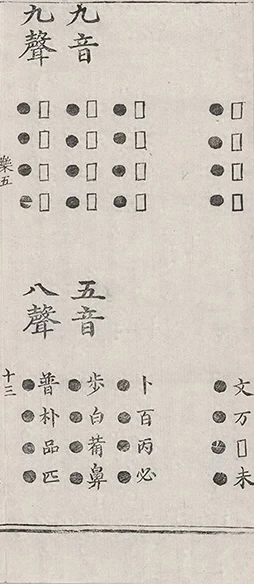 ●□●□●□●□
●□●□●□●□
九音
●□●□●□●□
九聲
●□●□●□●□
樂五
●文●万●□●未
●卜●百●丙●必
五音
●步●白●葡●鼻
八聲
●普●朴●品●匹
十三